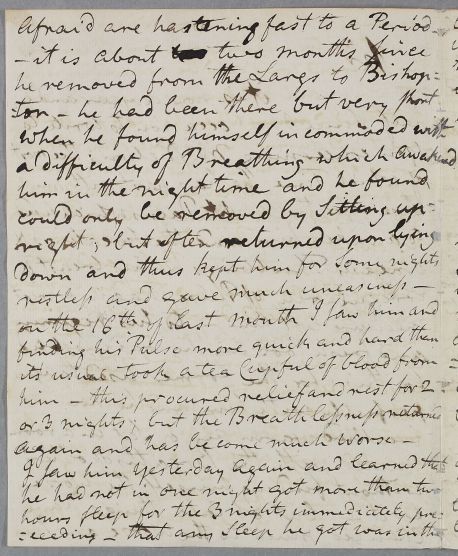 afraid are hastening fast to a Period
- it is about two months since
he removed from the Largs to Bishop:
:ton - he had been there but very short
when he found himself incommoded with
a difficulty of Breathing which awakened
him in the night time and he found
could only be removed by Sitting up-
right; but often returned upon lying
down and thus kept him for some nights
restless and gave much uneasiness -
on the 16th of last month I saw him and
finding his Pulse more quick and hard than
its usual took a tea Cupful of blood from
him - this procured relief and rest for 2
or 3 nights, but the Breathlessness returned
again and has become much worse -
I saw him yesterday again and learned that
he had not in one night got more than two
hours sleep for the 3 nights immediately pre:
:ceeding - that any Sleep he got was in the